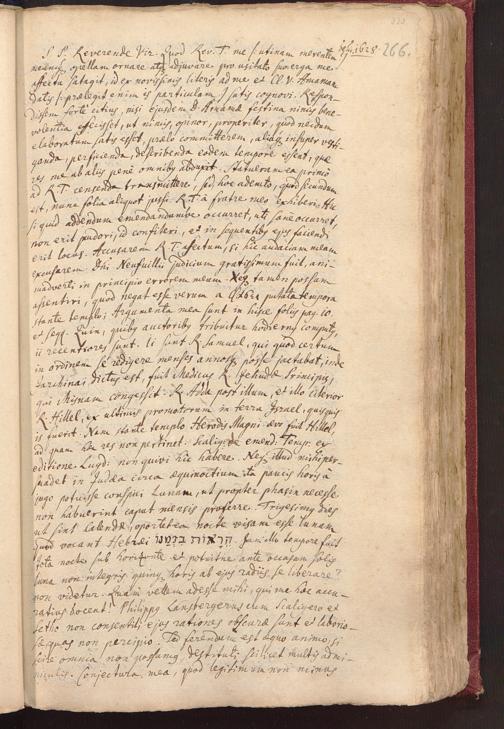 266.
July. 1628
S. P. Reverende Vir. Quod Rev. T. me (utinam merentem
opellam ornare atq; adjuvare pro usitato sue erga me
affectu satagit, id ex novissimis literis ad me et Cl. V. Amamam
datis (prælegit enim is particulam) satis cognovi. Respon-
dissem forte citius, nisi ejusdem D. Amamæ festina nimis bene-
volentia effecisset, ut nimis, opinor, properiter, quod needum
elaboratum satis esset, prælo committerem, aliaq; insuper
perficienda, describenda eodem tempore essent; que
res me ab aliis pene omnibus abduxit. Statueram ea primo
ad R. T. censenda transmittere, sed hoc ademto, quod secundum
est, nunc folia aliquot jussi R. T. a fratre meo exhiberi. Hic
si quid addendum emendandumve occurret, uti sane occurret,
non erit pudori, id confiteri, et in sequentibus ejus faciendi
erit locus. Accusarem R. T. affectum, si hic audaciam meam
excusarem. Dni Neufvillii judicium gratissimum fuit, ani-
madverti in principio errorem meum. Neq; tamen possum
assentiri, quod negat esse verum a putata tempora
stante templo; Argumenta mea sunt in hisce foliis pag. 10.
et seqq. Quin, quibus auctoribus tribuitur hodiernus computus,
ii recentiores sunt. Ii sunt R. Samuel, qui quod certum
in ordinem se redigere menses annosq; posse jactabat, inde
Jarchinai dictus est, fuit Medicus R. Jehudæ Principis,
qui Misnam congessit. R. Adda post illum, et illo citerior
R. Hillel, ex ultimis promotorum in terra Israel, quisquis
is fuerit. Nam stante templo Herodis Magni ævo fuit Hillel,
ad quem hæc res non pertinet. Scaliger de emend. Temp. ex
editione Lugd. non quivi hic habere. Neq; illud mihi per-
suadet in Judæa circa æquinoctium ita paucis horis a
jugo potuisse conspici Lunam, ut propter phasin necesse
non habuerint caput mensis proferre. Trigesimus dies
ut sint calendæ, oportet ea nocte visam esse lunam
quod vocant Hebræi הראות בזמנו. Jam illo tempore fuit
tota nocte sub horizonte et potuitne ante occasum solis
luna non integris quinq; horis ab ejus radiis se liberare?
non videtur. Quam vellem adesse mihi, qui me hæc accu-
ratius doceat! Philippus Lansbergenus cum Scaligero et
Setho non consentit; ejus rationes obscuræ sunt et laborio-
sæ quas non percipio. Sed ferendum est æquo animo, si
scire omnia non possumus, destituti scilicet multis admi-
niculis. Conjectura mea, quod legitimum non minus